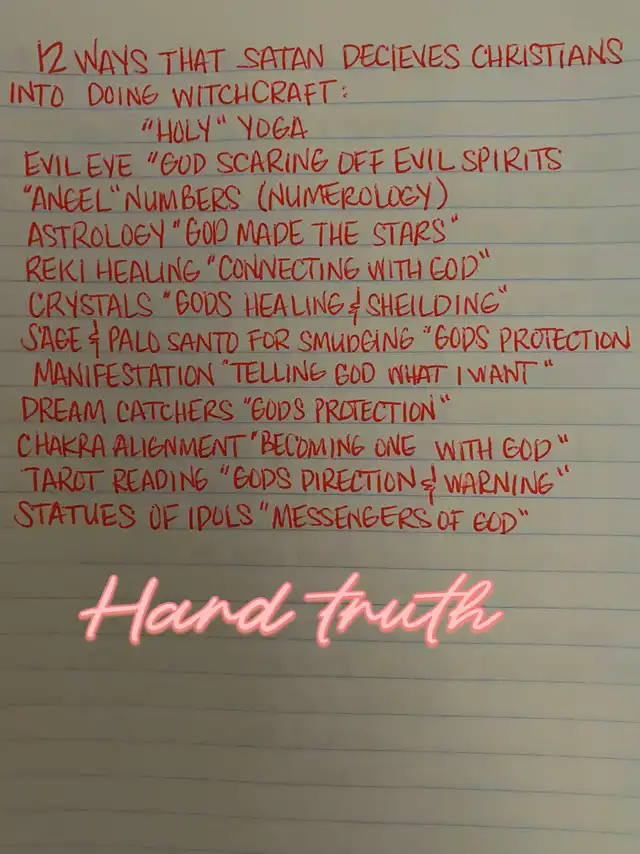 12 WAYS THAT SATAN DECIEVES CHRISTIANS
INTO DOING WITCHCRAFT:
"HOLY" YOGA
EVIL EYE "GOD SCARING OFF EVIL SPIRITS
"ANGEL" NUMBERS (NUMEROLOGY)
ASTROLOGY "GOD MADE THE STARS"
REKI HEALING "CONNECTING WITH GOD"
CRYSTALS "GODS HEALING & SHEILDING"
SAGE & PALO SANTO FOR SMUDGING "GODS PROTECTION
MANIFESTATION "TELLING GOD WHAT I WANT"
DREAM CATCHERS "GODS PROTECTION"
CHAKRA ALIGNMENT "BECOMING ONE WITH GOD"
TAROT READING "GODS DIRECTION & WARNING"
STATUES OF IDOLS "MESSENGERS OF GOD"
Hard truth